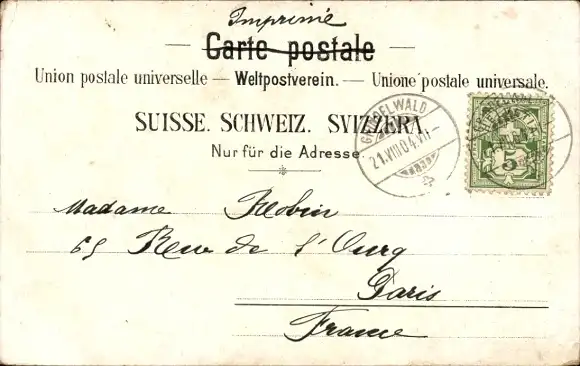 Imprimé
— Carte postale —
Union postale universelle — Weltpostverein. — Unione postale universale.
SUISSE. SCHWEIZ. SVIZZERA.
Nur für die Adresse.
GRINDELWALD
21.VIII.04.VII–
HELVETIA
5
Madame Robin
65 Rue de l'Ourq
Paris
France